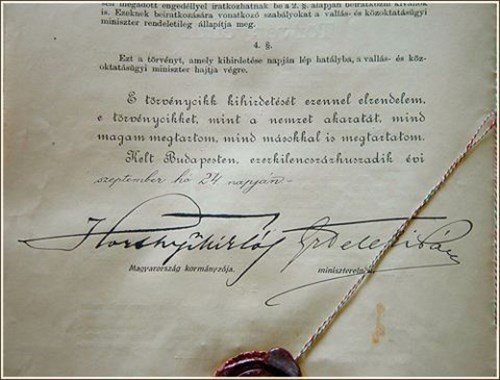 megadott engedéllyel iratkozhatnak be a 2. §. alapján beiratkozni kívánók
is. Ezeknek beiratkozására vonatkozó szabályokat a vallás- és közoktatásügyi
miniszter rendeletileg állapítja meg.
4. §.
Ezt a törvényt, amely kihirdetése napján lép hatályba, a vallás- és köz-
oktatásügyi miniszter hajtja végre.
E törvénycikk kihirdetését ezennel elrendelem,
e törvénycikket, mint a nemzet akaratát, mind
magam megtartom, mind másokkal is megtartatom.
Kelt Budapesten, ezerkilencszázhuszadik évi
szeptember hó 24 napján
Horthy Miklós Teleki Pál
Magyarország kormányzója. minisztereln